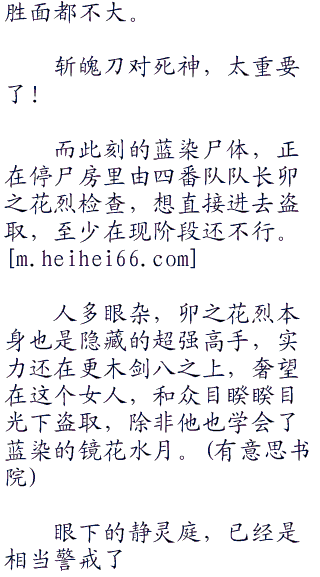 胜面都不大。
斩魄刀对死神，太重要
了！
而此刻的蓝染尸体，正
在停尸房里由四番队队长卯
之花烈检查，想直接进去盗
取，至少在现阶段还不行。
[m.heihei66.com]
人多眼杂，卯之花烈本
身也是隐藏的超强高手，实
力还在更木剑八之上，奢望
在这个女人，和众目睽睽目
光下盗取，除非他也学会了
蓝染的镜花水月。(有意思书
院)
眼下的静灵庭，已经是
相当警戒了